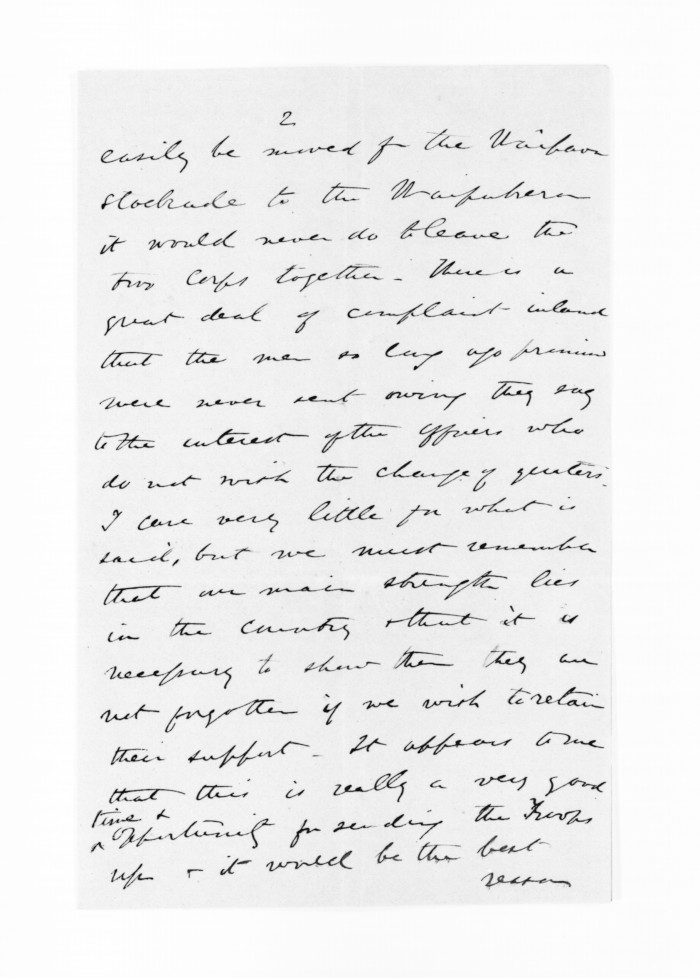 2
easily be moved fr the Waipawa
stockade to the Waipukurau
it would never do to leave the
two Corps together - There is a
great deal of complaint inland
that the men so long ago promised
were never sent owing they say
to the interest of the Officers who
do not wish the change of quarters.
I care very little for what is
said, but we must remember
that our main strength lies
in the Country & that it is
necessary to show them they are
not forgotten if we wish to retain
their support - It appears to me
that this is really a very good
time &
opportunity for sending the Troops
up & it would be the best
reason